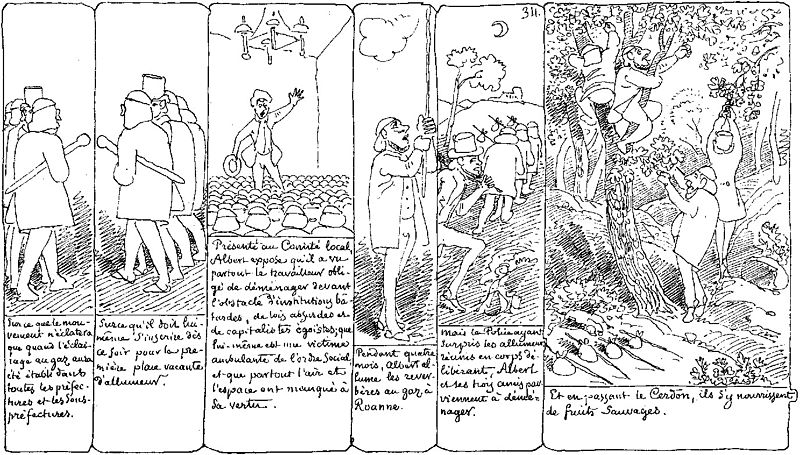 Sur ce que le mou-
vement n'éclatera
que quand l'éclai-
rage au gaz aura
été établi dans
toutes les préfec-
tures et les sous-
préfectures.
Sur ce qu'il doit lui-
même s'inscrire dès
ce soir pour la pre-
mière place vacante
d'allumeur.
Présenté au Comité local,
Albert expose qu'il a vu
partout le travailleur obli-
gé de déménager devant
l'obstacle d'institutions bâ-
tardes, de lois absurdes et
de capitalistes égoïstes; que
lui-même est une victime
ambulante de l'ordre social
et que partout l'air et
l'espace ont manqué à
sa vertu.
Pendant quatre
mois, Albert al-
lume les réver-
bères au gaz à
Roanne.
311.
Mais la Police ayant
surpris les allumeurs
réunis en corps dé-
libérant, Albert
et ses trois amis par-
viennent à démé-
nager.
Et en passant le Cerdon, ils s'y nourrissent
de fruits sauvages.